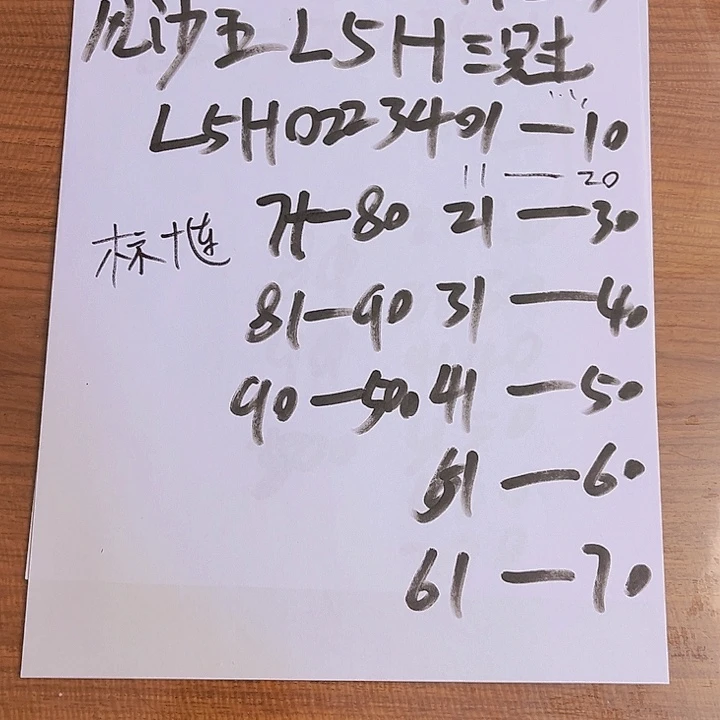 沙王L5H三冠
L5H02234 01—10
11—20
71—80 21—30
标
81—90 31—40
90—500 41—50
51—60
61—70